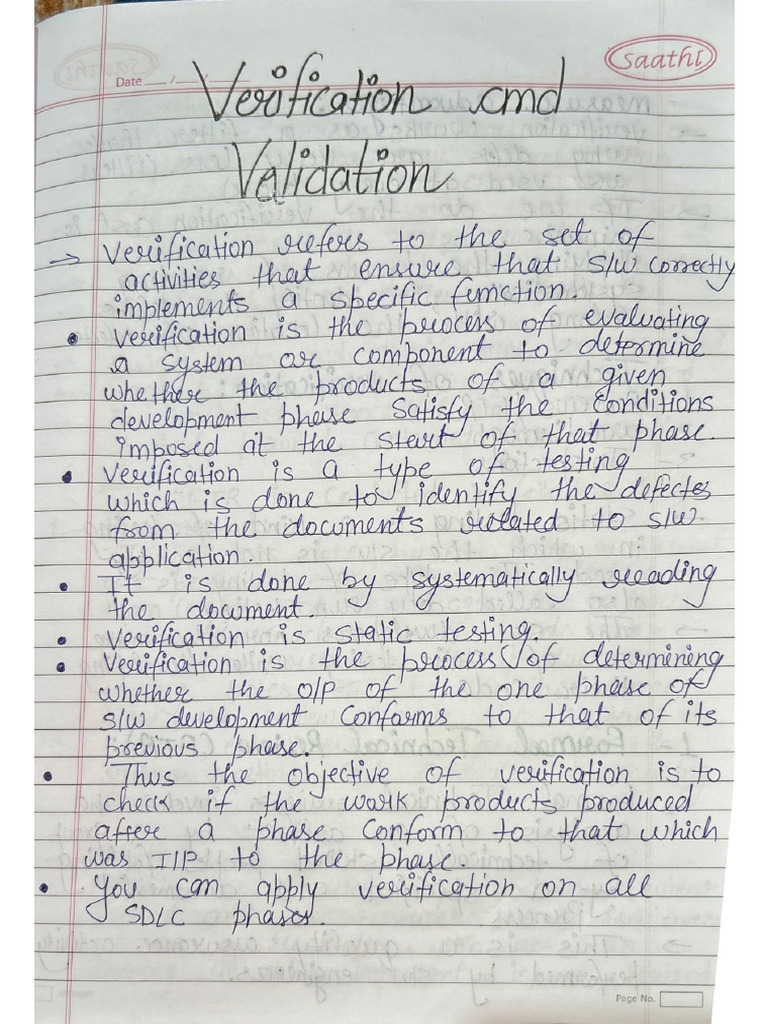 Saathi
Date __/__/__
Verification and
Validation
→ Verification refers to the set of
activities that ensure that S/W correctly
implements a specific function.
• Verification is the process of evaluating
a system or component to determine
whether the products of a given
development phase satisfy the conditions
imposed at the start of that phase.
• Verification is a type of testing
which is done to identify the defectes
from the documents related to S/W
application.
• It is done by systematically reading
the document.
• Verification is static testing.
• Verification is the process of determining
whether the O/P of the one phase of
S/W development Conforms to that of its
previous phase.
• Thus the objective of verification is to
check if the work products produced
after a phase Conform to that which
was I/P to the phase.
• You can apply verification on all
SDLC phases.
Page No.